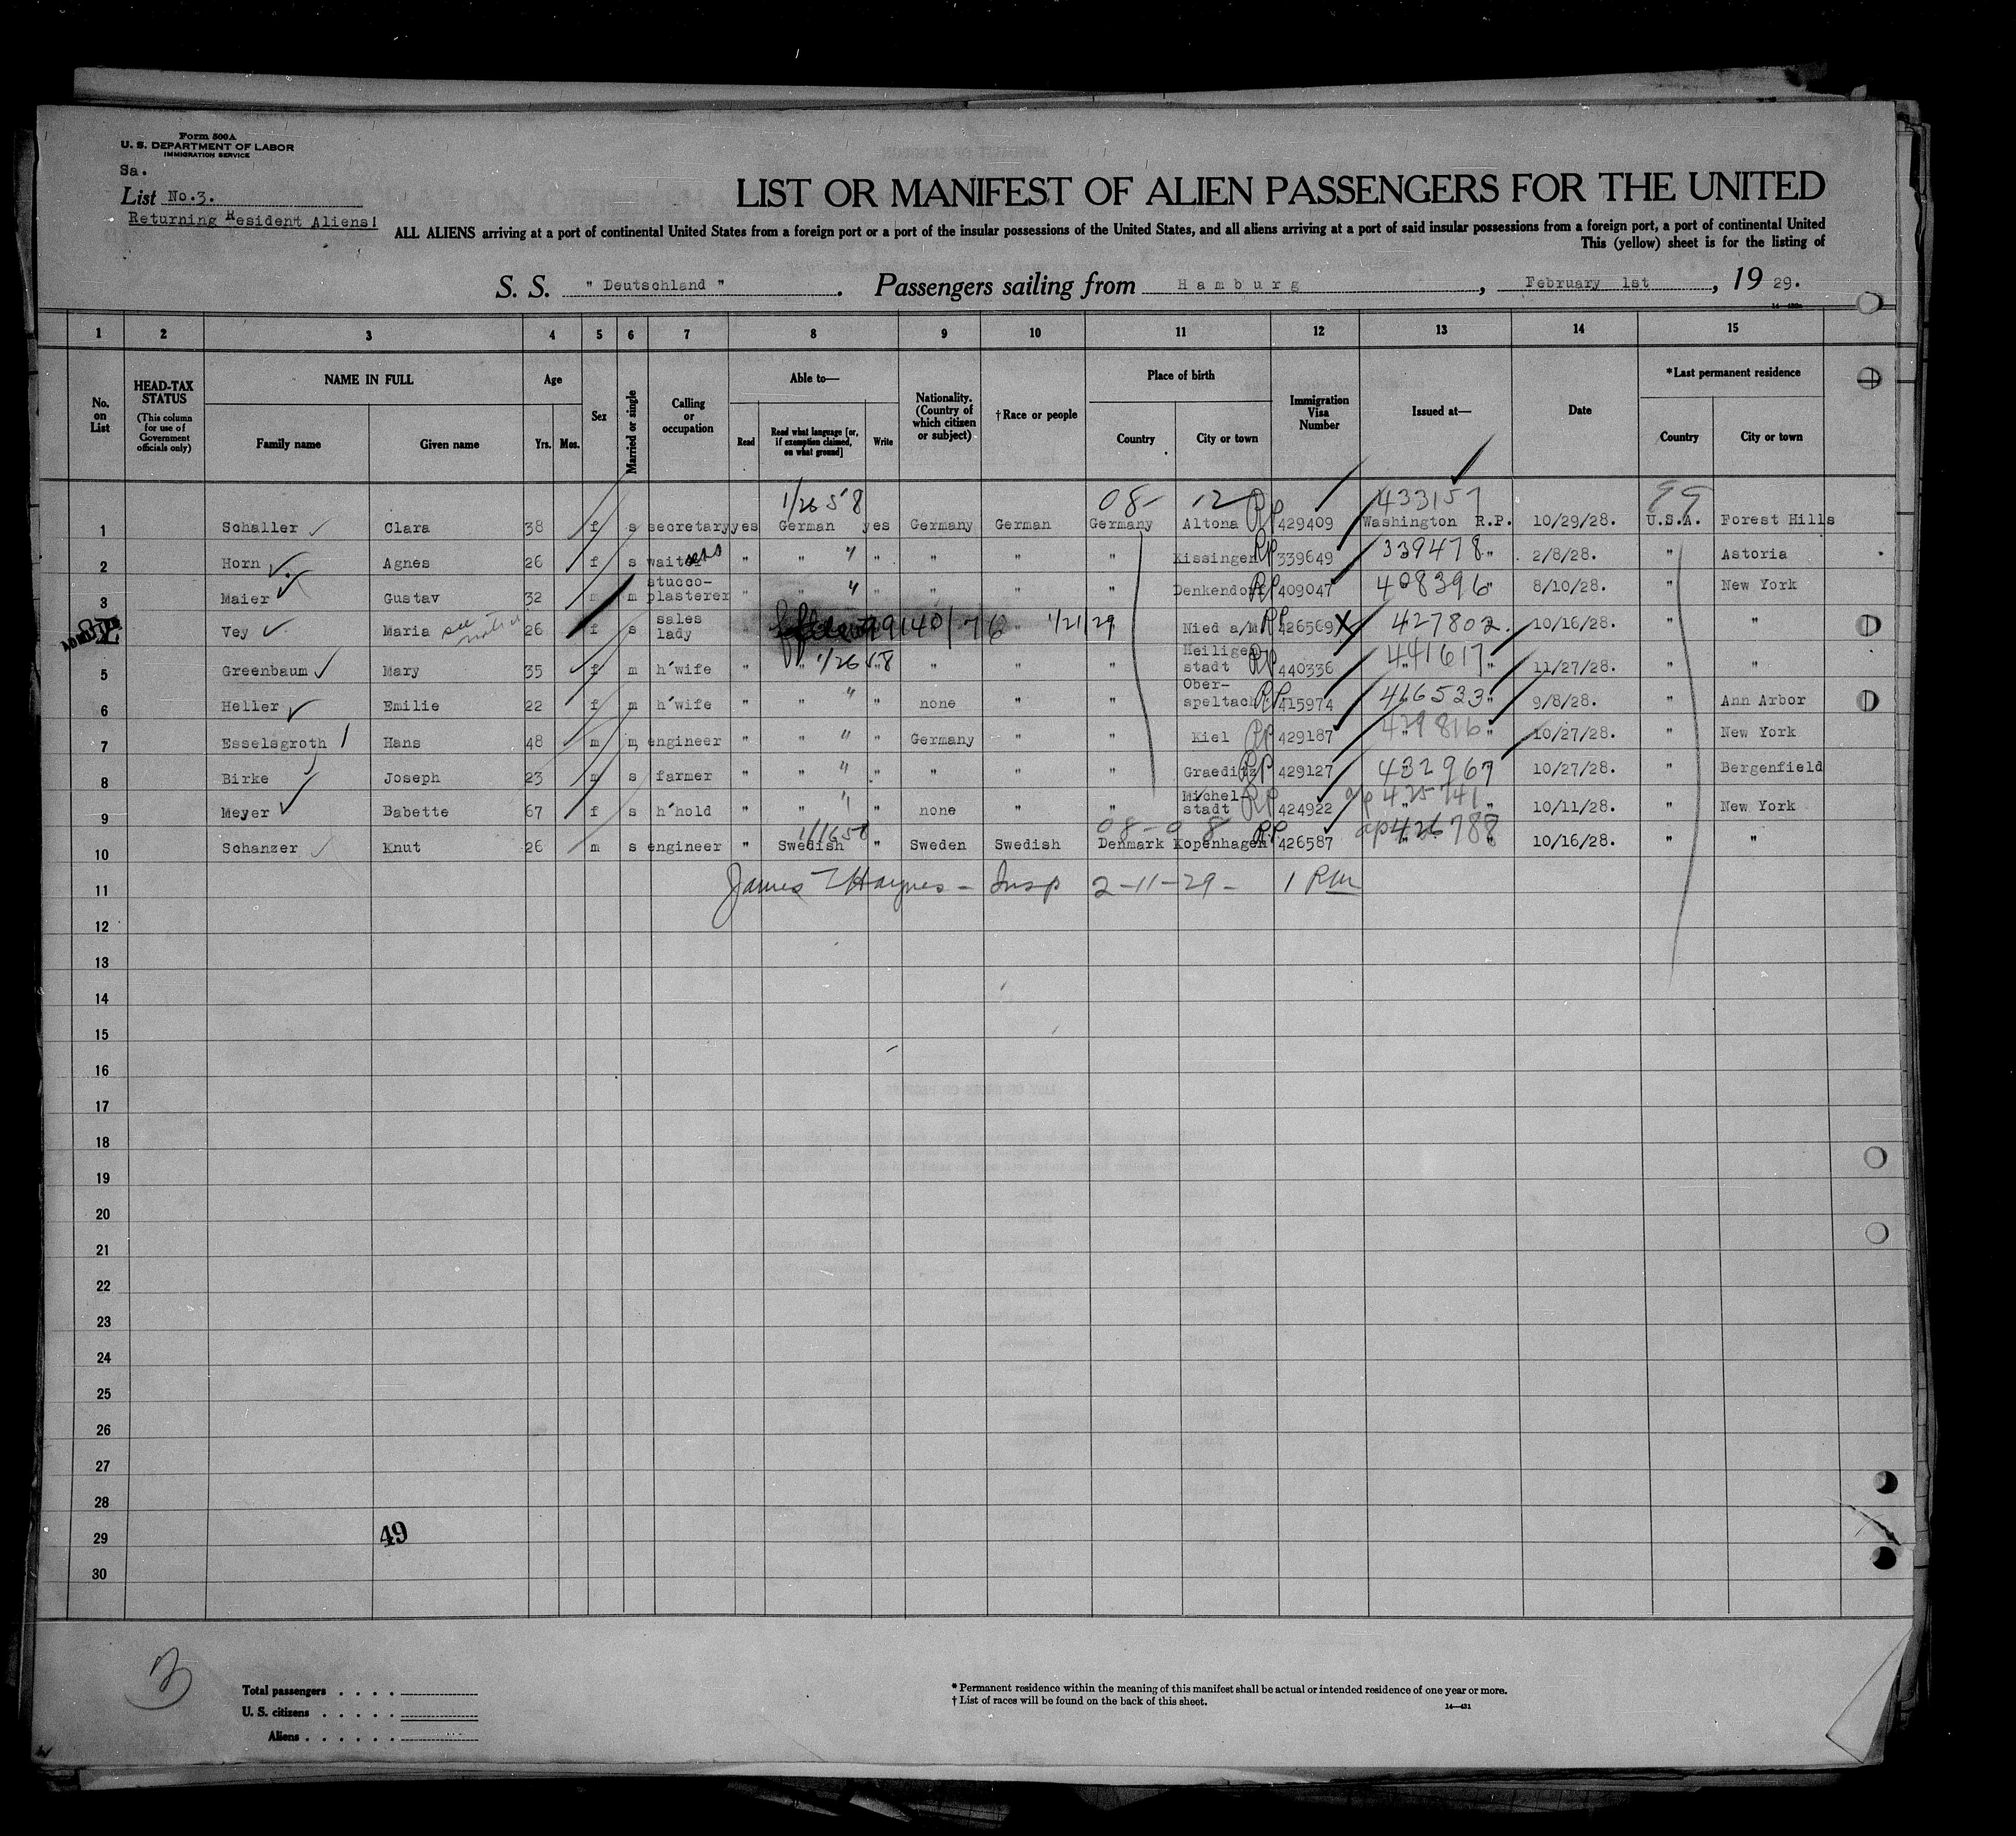 Form 500A
U. S. DEPARTMENT OF LABOR
IMMIGRATION SERVICE
Sa.
List No.3.
Returning Resident Aliens!
LIST OR MANIFEST OF ALIEN PASSENGERS FOR THE UNITED
ALL ALIENS arriving at a port of continental United States from a foreign port or a port of the insular possessions of the United States, and all aliens arriving at a port of said insular possessions from a foreign port, a port of continental United
This (yellow) sheet is for the listing of
S. S. " Deutschland " . Passengers sailing from Hamburg , February 1st , 19 29.
1 2 3 4 5 6 7 8 9 10 11 12 13 14 15
No. on List
HEAD-TAX STATUS (This column for use of Government officials only)
NAME IN FULL
Family name Given name
Age
Yrs. Mos.
Sex
Married or single
Calling or occupation
Able to—
Read Read what language [or, if exemption claimed, on what ground] Write
Nationality. (Country of which citizen or subject)
†Race or people
Place of birth
Country City or town
Immigration Visa Number
Issued at—
Date
*Last permanent residence
Country City or town
1/26 58 08- 12 433157 99
1 Schaller Clara 38 f s secretary yes German yes Germany German Germany Altona RP 429409 Washington R.P. 10/29/28. U.S.A. Forest Hills
2 Horn Agnes 26 f s waitress " " " " " " Kissingen RP 339649 339478 " 2/8/28. " Astoria
3 Maier Gustav 32 m m stucco-plasterer " " " " " " Denkendorf RP 409047 408396 " 8/10/28. " New York
ADMITTED Vey Maria see 26 f s sales lady 99140/76 1/21/29 Nied a/M RP 426569 X 427802 10/16/28. " "
5 Greenbaum Mary 35 f m h'wife " " 1/26 58 " " " " Heiligenstadt RP 440336 441617 " 11/27/28. " "
6 Heller Emilie 22 f m h'wife " " " none " " Ober-speltach RP 415974 416533 " 9/8/28. " Ann Arbor
7 Esselsgroth Hans 48 m m engineer " " " Germany " " Kiel RP 429187 429816 " 10/27/28. " New York
8 Birke Joseph 23 m s farmer " " " " " " Graeditz RP 429127 432967 10/27/28. " Bergenfield
9 Meyer Babette 67 f s h'hold " " " none " " Michel-stadt RP 424922 ap 425741 " 10/11/28. " New York
08-08
10 Schanzer Knut 26 m s engineer " Swedish " Sweden Swedish Denmark Kopenhagen RP 426587 ap 426788 " 10/16/28. " "
11 James T Haynes - Insp 2-11-29 -
12
13
14
15
16
17
18
19
20
21
22
23
24
25
26
27
28
29 49
30
3
Total passengers . . . .
U. S. citizens . . . . .
Aliens . . . . . .
* Permanent residence within the meaning of this manifest shall be actual or intended residence of one year or more.
† List of races will be found on the back of this sheet.
14—431